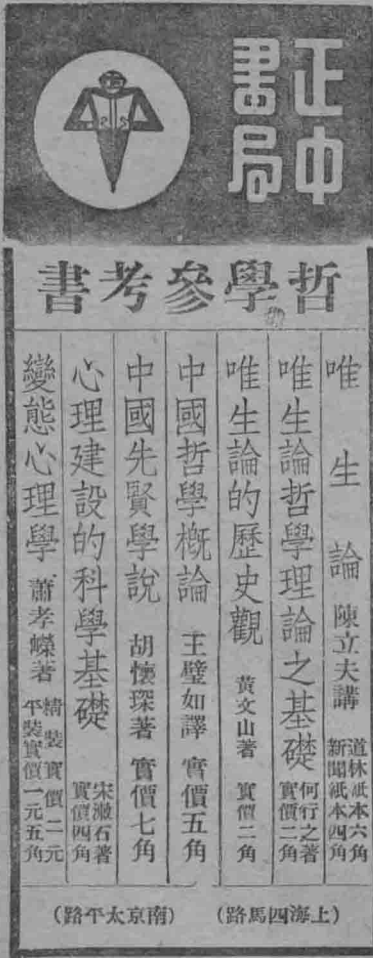 正中書局
哲學參考書
唯生論 陳立夫講 道林紙本六角 新聞紙本四角
唯生論哲學理論之基礎 何行之著 實價二角
唯生論的歷史觀 黃文山著 實價二角
中國哲學概論 王璧如譯 實價五角
中國先賢學說 胡懷琛著 實價七角
心理建設的科學基礎 宋漱石著 實價四角
變態心理學 蕭孝嶸著 精裝實價二元 平裝實價一元五角
(上海四馬路) (南京太平路)